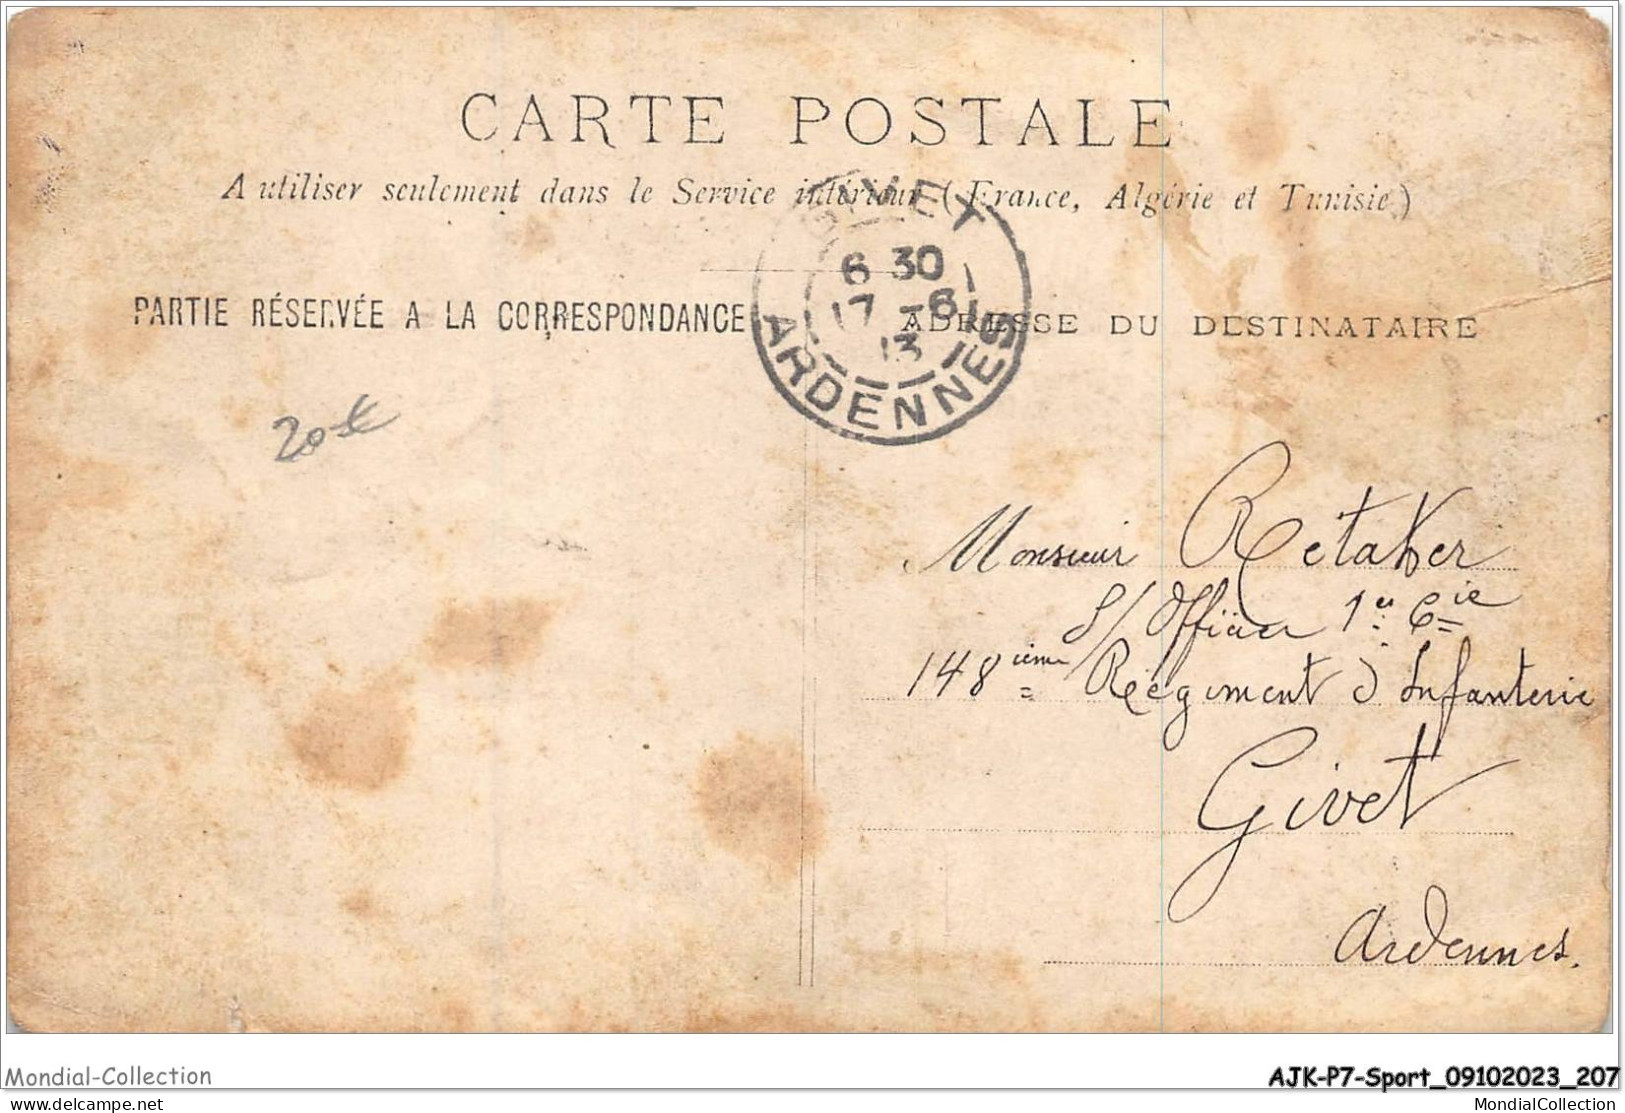 CARTE POSTALE
A utiliser seulement dans le Service intérieur (France, Algérie et Tunisie)
GIVET
6 30
17 -6
13
ARDENNES
PARTIE RÉSERVÉE A LA CORRESPONDANCE
ADRESSE DU DESTINATAIRE
20
Monsieur Retaker
S/Officier 1er Cie
148ième Réegiment d'Infanterie
Givet
Ardennes.
Mondial-Collection
AJK-P7-Sport_09102023_207
delcampe.net
MondialCollection